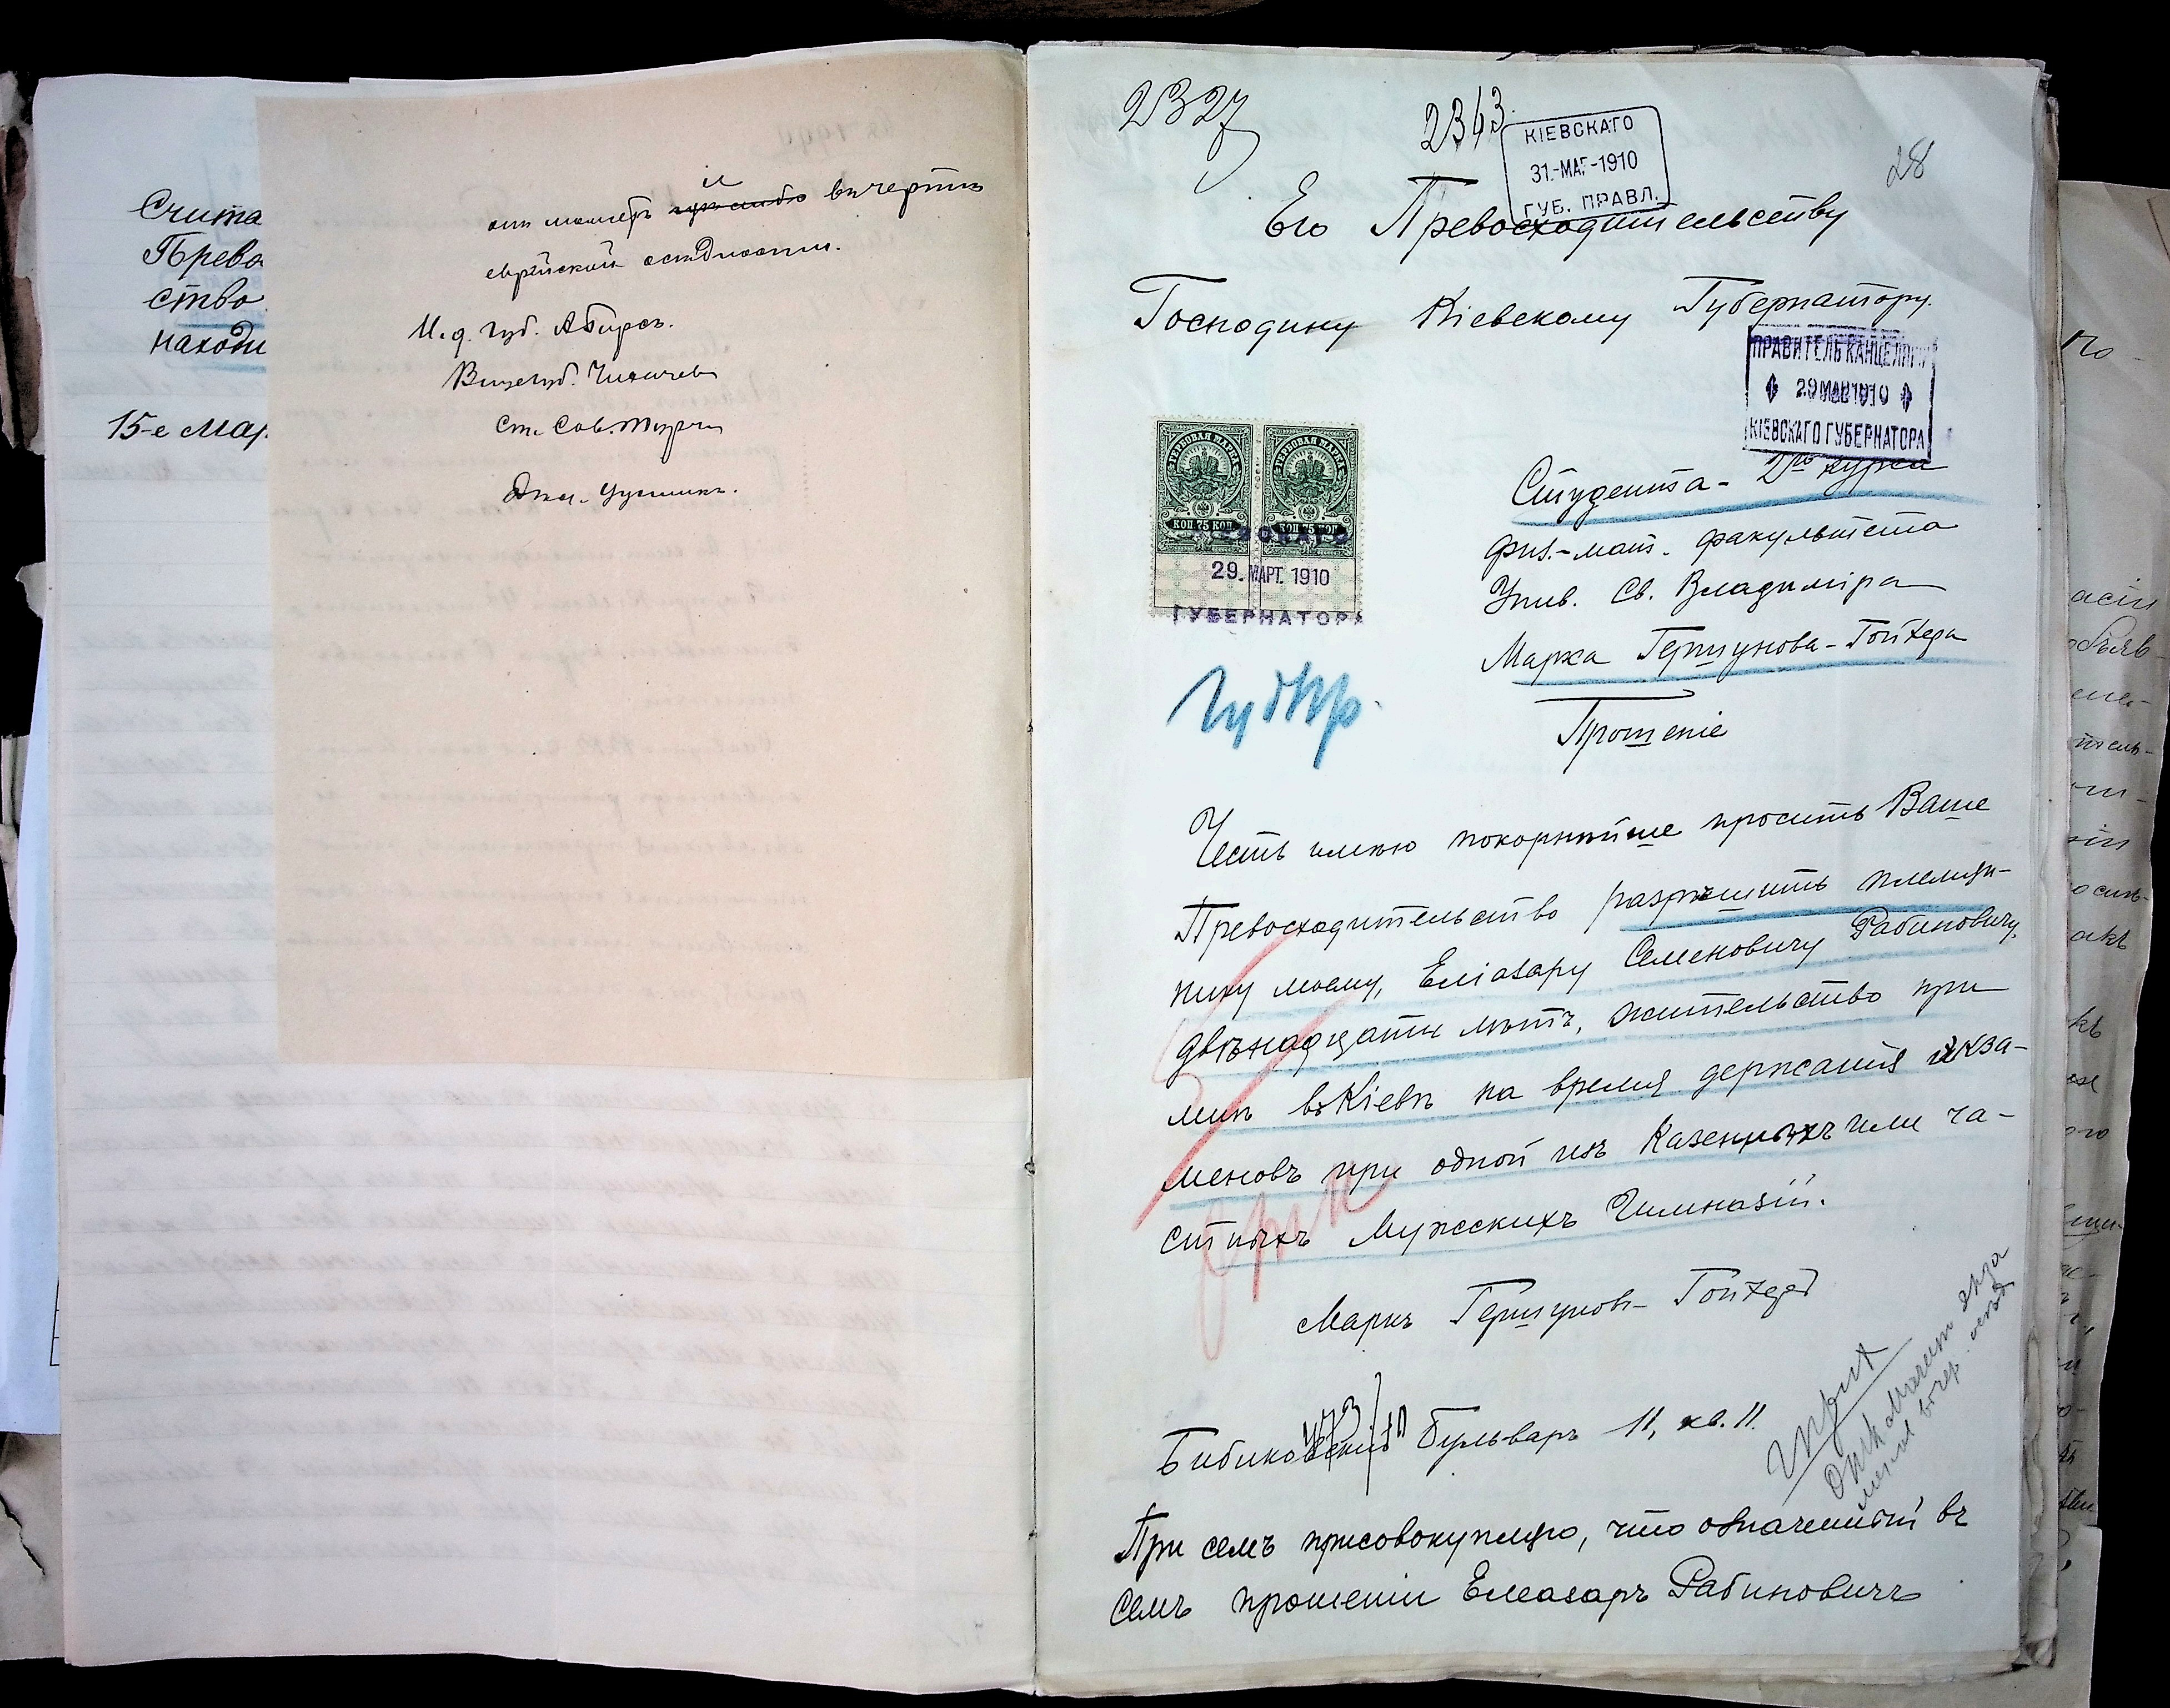 Счита
Прево
ство
находи
15-е мар.
онъ можетъ и въ чертѣ
еврейской осѣдлости.
И. д. губ.
Вицегуб. Чихачевъ
Ст. Сов.
2327
2343
КІЕВСКАГО
31-МАР-1910
ГУБ. ПРАВЛ.
28
Его Превосходительству
Господину Кіевскому Губернатору.
ПРАВИТЕЛЬ КАНЦЕЛЯРІИ
29 МАР 1910
КІЕВСКАГО ГУБЕРНАТОРА
ГЕРБОВАЯ МАРКА ГЕРБОВАЯ МАРКА
КОП. 75 КОП. КОП. 75 КОП.
КІЕВСКАГО
29. МАРТ. 1910
ГУБЕРНАТОРА
Студента - 2го курса
физ.-мат. факультета
Унив. Св. Владиміра
Марка Гершунова-Гойхера
ГубПр.
Прошеніе
Честь имѣю покорнѣйше просить Ваше
Превосходительство разрѣшить племян-
нику моему, Еліазару Семеновичу Рабиновичу,
двѣнадцати лѣтъ, жительство при
мнѣ въ Кіевѣ на время держанія экза-
меновъ при одной изъ Казенныхъ или ча-
стныхъ Мужскихъ Гимназій.
Маркъ Гершуновъ-Гойхер
473/10
Бибиковскій Бульваръ 11, кв. 11.
При семъ присовокупляю, что означенный въ
семъ прошеніи Елеазаръ Рабиновичъ